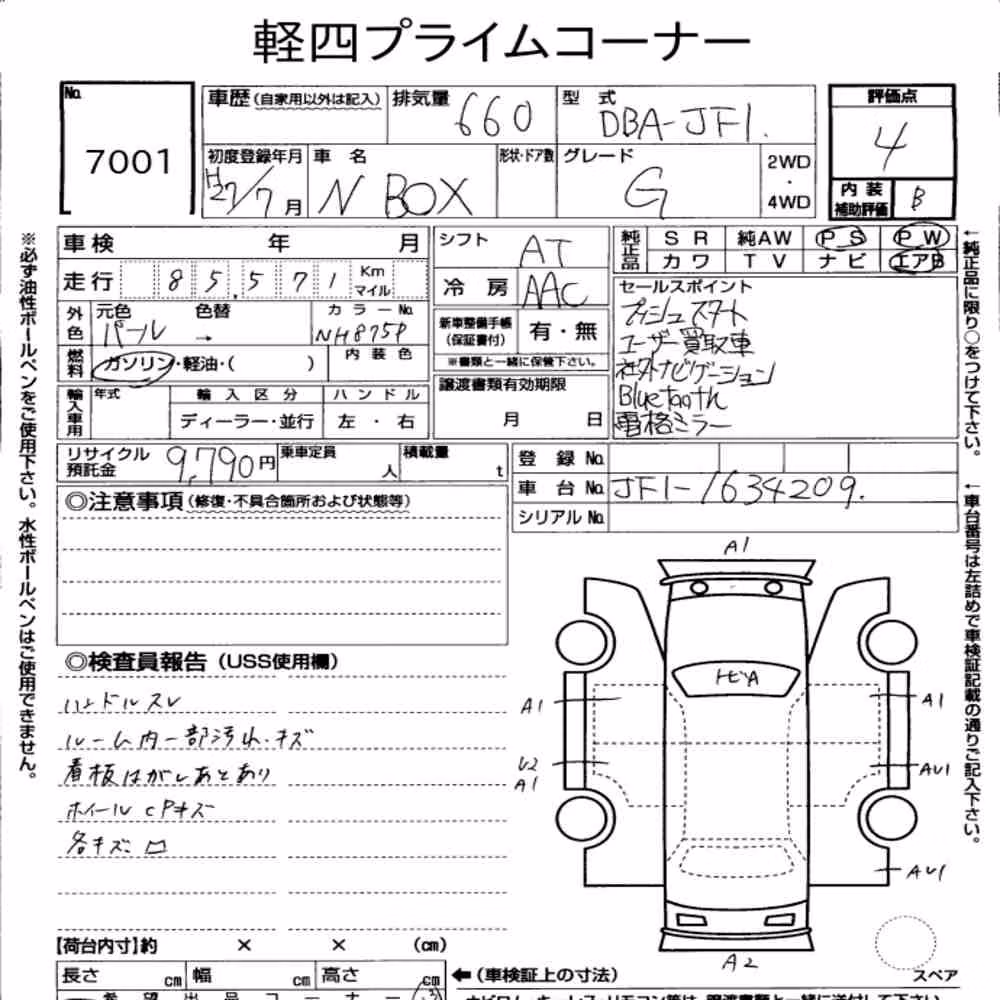 軽四プライムコーナー
No. 7001
車歴(自家用以外は記入) 排気量 660 型式 DBA-JF1.
初度登録年月 H27/7月 車名 N BOX 形状・ドア数 グレード G 2WD・4WD
評価点 4
内装補助評価 B
車検 年 月
走行 85,571 Km マイル
外色 元色 パール 色替 → カラーNo. NH875P
燃料 ガソリン・軽油・( ) 内装色
輸入車用 年式 輸入区分 ディーラー・並行 ハンドル 左・右
シフト AT
冷房 AAC
新車整備手帳(保証書付) 有・無
※書類と一緒に保管下さい。
譲渡書類有効期限
月 日
純正品 SR 純AW PS PW
カワ TV ナビ エアB
セールスポイント
プッシュスタート
ユーザー買取車
社外ナビゲーション
Bluetooth
電格ミラー
リサイクル預託金 9,790円 乗車定員 人 積載量 t
登録No.
車台No. JF1-1634209.
シリアルNo.
◎注意事項(修復・不具合箇所および状態等)
◎検査員報告(USS使用欄)
ハンドルスレ
ルーム内一部汚れ.キズ
看板はがしあとあり
ホイールCPキズ
各キズ凹
【荷台内寸】約 × × (cm)
長さ cm 幅 cm 高さ cm
←(車検証上の寸法)
A1
トビA
A1
A1
U2
A1
AU1
AU1
A2
スペア
※必ず油性ボールペンをご使用下さい。水性ボールペンはご使用できません。
←純正品に限り○をつけて下さい。
←車台番号は左詰めで車検証記載の通りご記入下さい。